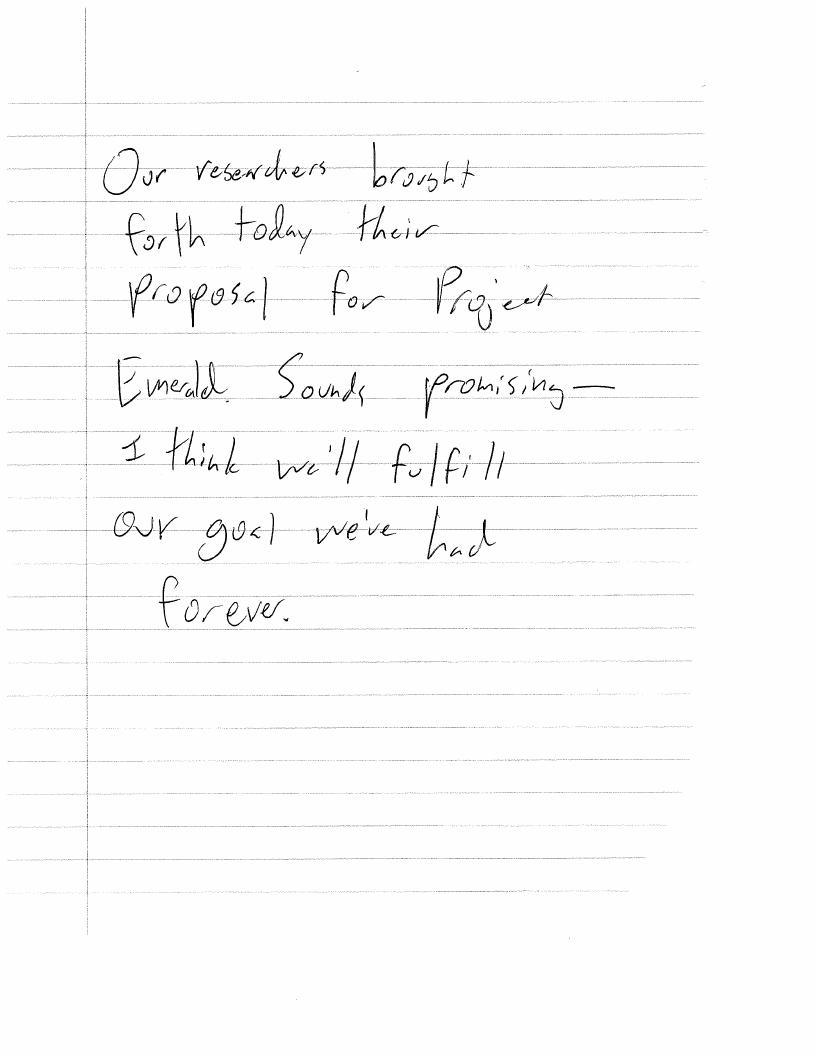 Our researchers brought
forth today their
proposal for Project
Emerald. Sounds promising—
I think we'll fulfill
our goal we've had
forever.